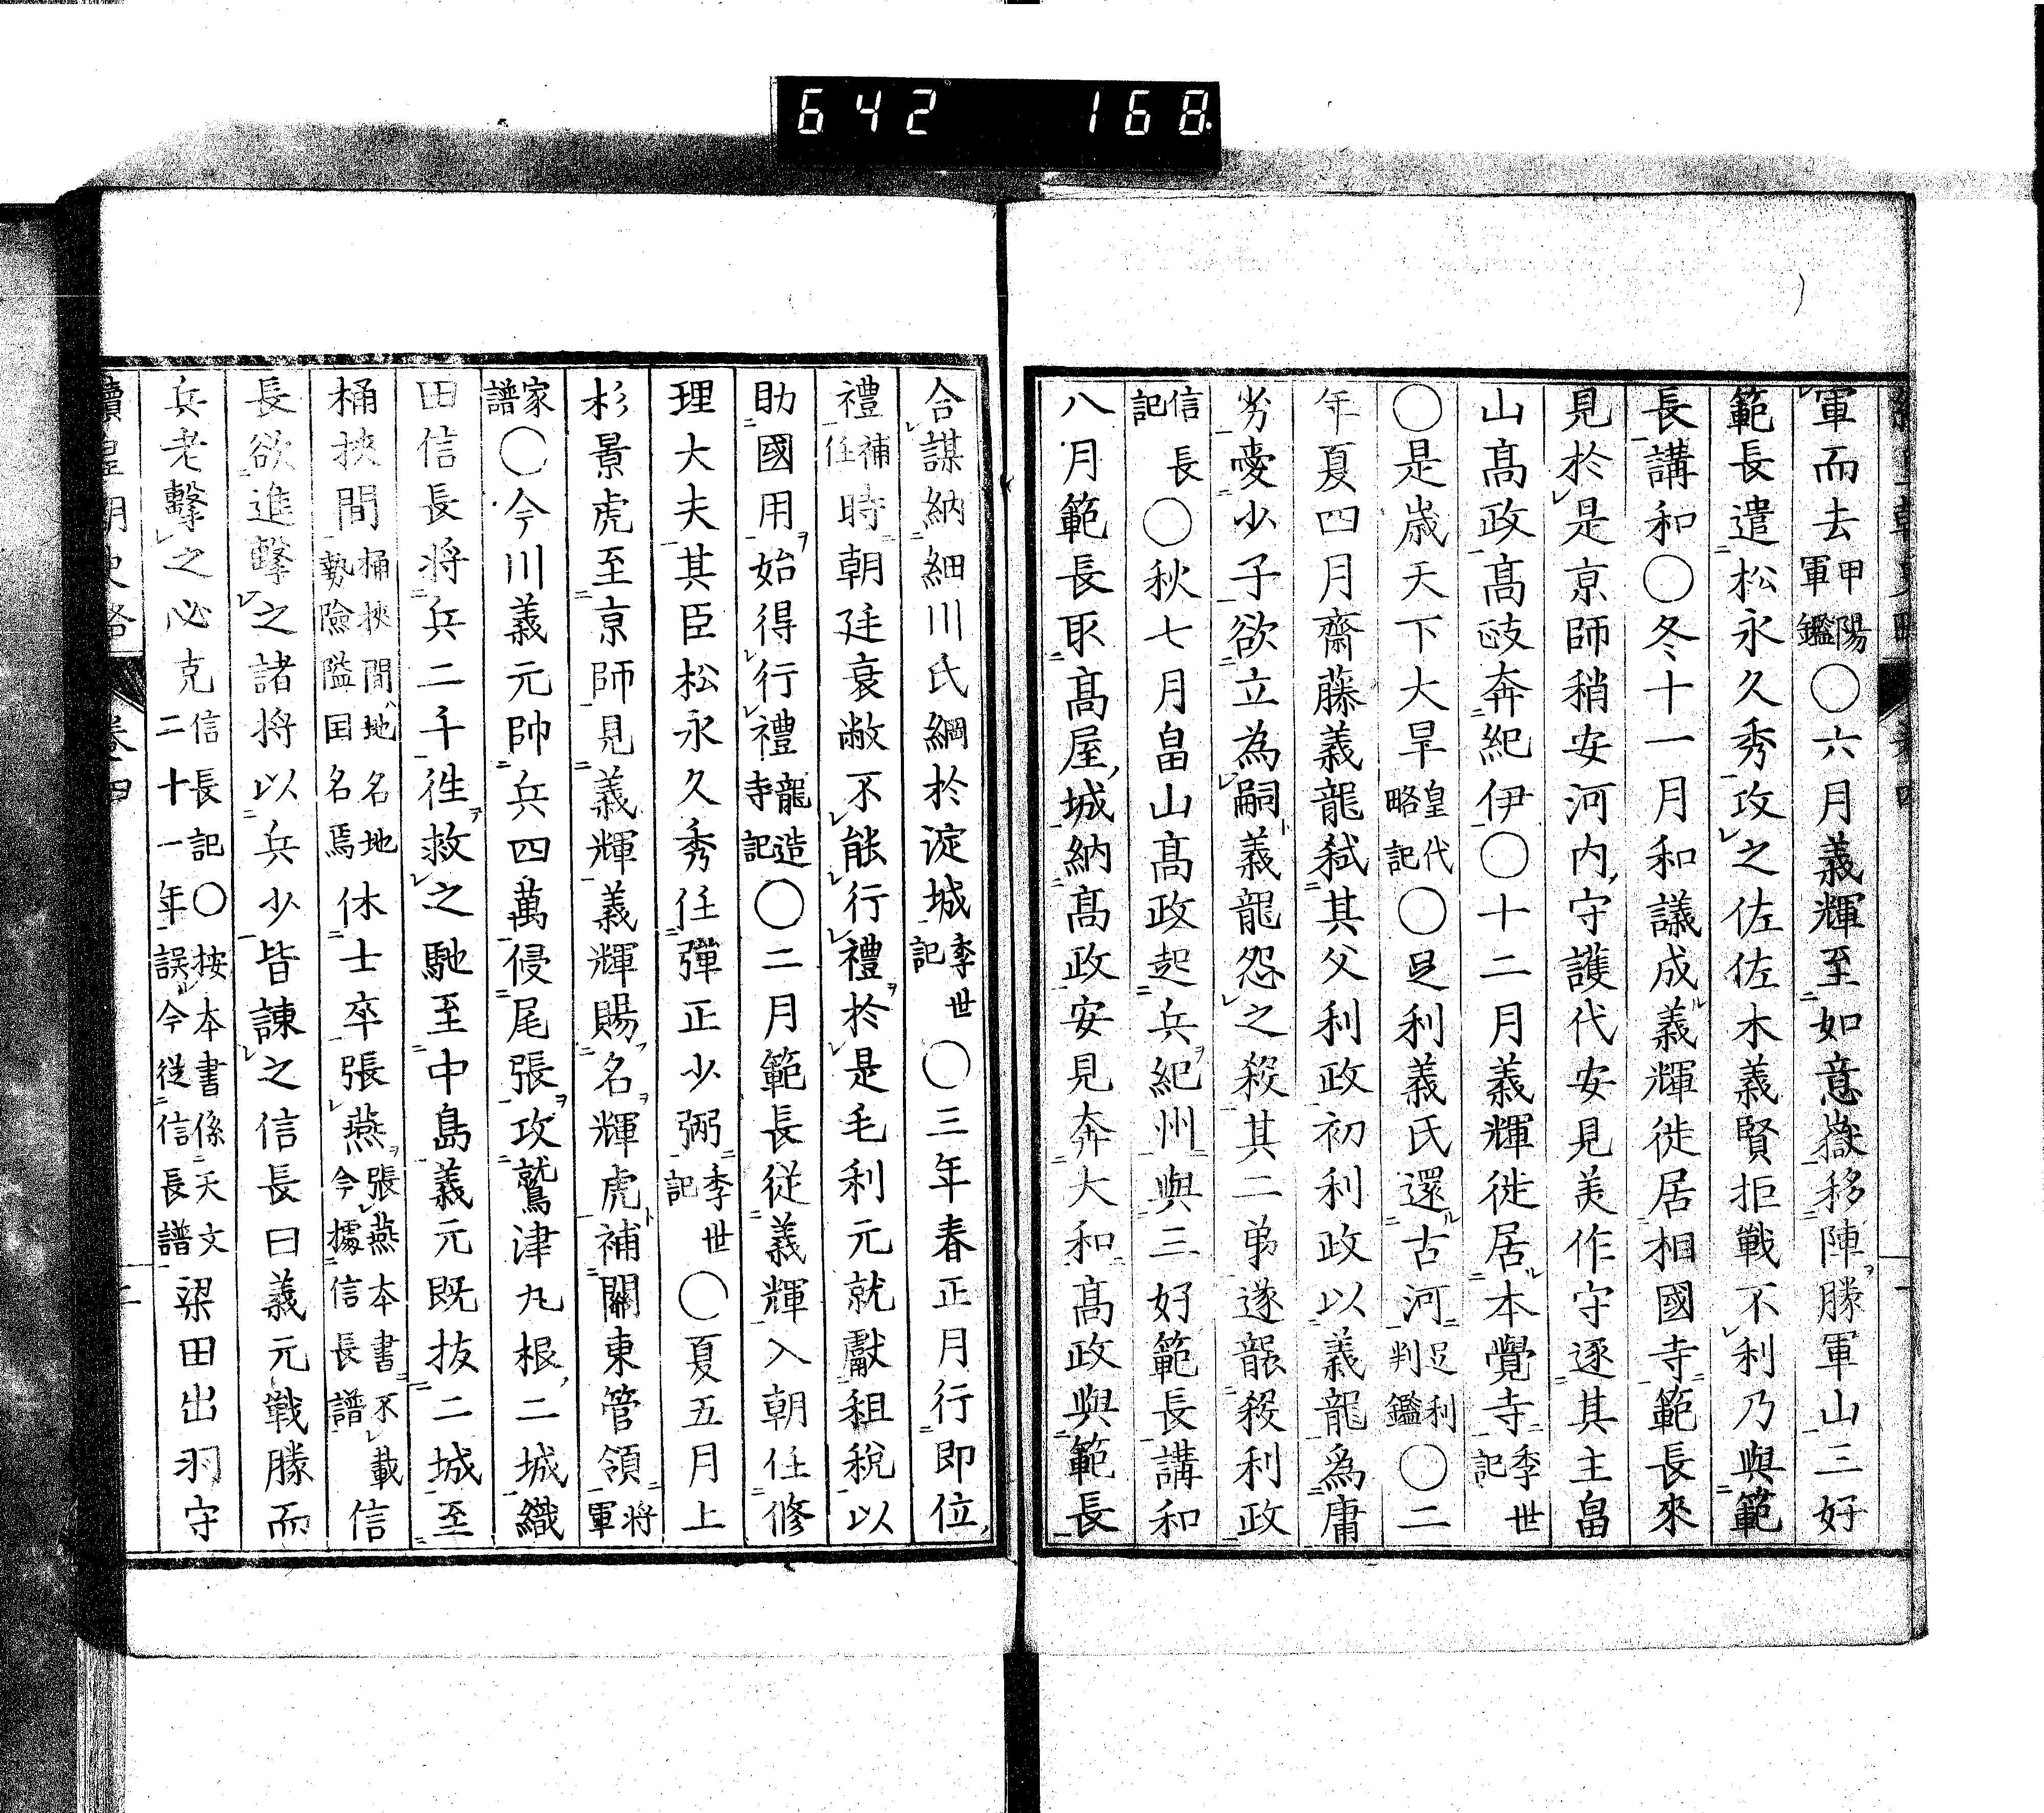 642 168
軍而去甲陽軍鑑〇六月義輝至如意嶽移陣勝軍山三好
範長遣松永久秀攻之佐佐木義賢拒戰不利乃與範
長講和〇冬十一月和議成義輝徙居相國寺範長來
見於是京師稍安河内守護代安見美作守逐其主畠
山髙政髙政奔紀伊〇十二月義輝徙居本覺寺季世記
〇是歳天下大旱皇代略記〇足利義氏還古河足利判鑑〇二
年夏四月齋藤義龍弑其父利政初利政以義龍爲庸
劣愛少子欲立為嗣義龍怨之殺其二弟遂襲殺利政
信長記〇秋七月畠山髙政起兵紀州與三好範長講和
八月範長取髙屋城納髙政安見奔大和髙政與範長
合謀納細川氏綱於淀城季世記〇三年春正月行即位
禮補任時朝廷衰敝不能行禮於是毛利元就獻租税以
助國用始得行禮龍造寺記〇二月範長従義輝入朝任修
理大夫其臣松永久秀任彈正少弼季世記〇夏五月上
杉景虎至京師見義輝義輝賜名輝虎補關東管領將軍
家譜〇今川義元帥兵四萬侵尾張攻鷲津丸根二城織
田信長将兵二千徃救之馳至中島義元既抜二城至
桶挾間桶挾間地名地勢險隘国名焉休士卒張燕張燕本書不載今據信長譜信
長欲進擊之諸将以兵少皆諌之信長曰義元戰勝而
兵老擊之必克信長記〇按本書係天文二十一年誤今従信長譜梁田出羽守
續皇朝史略 卷四